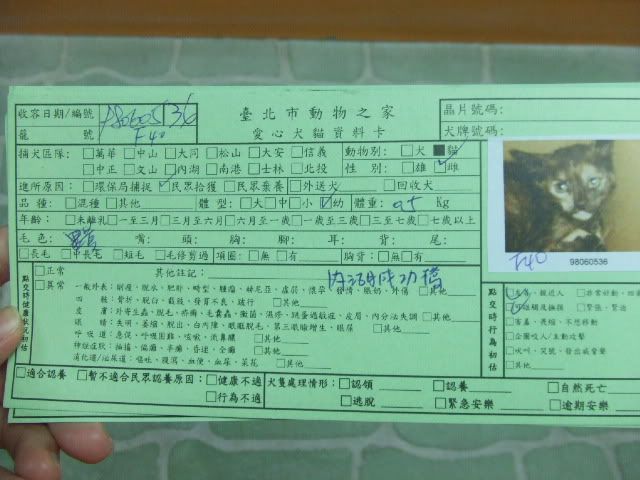 臺北市動物之家
愛心犬貓資料卡
收容日期/編號 980605 36
籠號 F40
晶片號碼:
犬牌號碼:
捕犬區隊: □萬華 □中山 □大同 □松山 □大安 □信義 動物別: □犬 ■貓
□中正 □文山 □內湖 □南港 □士林 □北投 性別: □雄 ☑雌
進所原因: □環保局捕捉 ☑民眾拾獲 □民眾棄養 □外送犬 □回收犬
品種: □混種 □其他 體型: □大 □中 □小 ☑幼 體重: Kg
年齡: □未離乳 □一至三月 □三月至六月 □六月至一歲 □一至三歲 □三至七歲 □七歲以上
毛色: 嘴: 頭: 胸: 腳: 耳: 背: 尾:
□長毛 □中長毛 □短毛 □毛修剪過 項圈: □無 □有 胸背: □無 □有
F40 98060536
點交時健康狀況初估
□正常 其他註記:
□異常 一般外觀: 削瘦、脫水、肥胖、畸型、腫瘤、赫尼亞、虛弱、懷孕、發情、脹奶、外傷 □其他
四肢: 骨折、脫臼、截肢、發育不良、跛行 □其他
皮膚: 外寄生蟲、脫毛、疥癬、毛囊蟲、黴菌、濕疹、跳蚤過敏症、皮屑、內分泌失調 □其他
眼睛: 失明、萎縮、脫出、白內障、眼瞼脫毛、第三眼瞼增生、眼屎 □其他
呼吸道: 急促、呼吸困難、咳嗽、流鼻膿 □其他
神經症狀: 抽搐、偏癱、半癱、昏迷、全癱 □其他
消化道/泌尿道: 嘔吐、腹瀉、血便、血尿、菜花 □其他
點交時行為初估
□友善、親近人 □非常好動、
□ 親近與撫摸 □緊張、緊迫
□害羞、畏縮、不想移動
□企圖咬人/主動攻擊
□吠叫、哭號、發出威脅聲
□其他
□適合認養 □暫不適合民眾認養原因: □健康不適 □行為不適
犬隻處理情形: □認領 □認養 □自然死亡
□逃脫 □緊急安樂 □逾期安樂